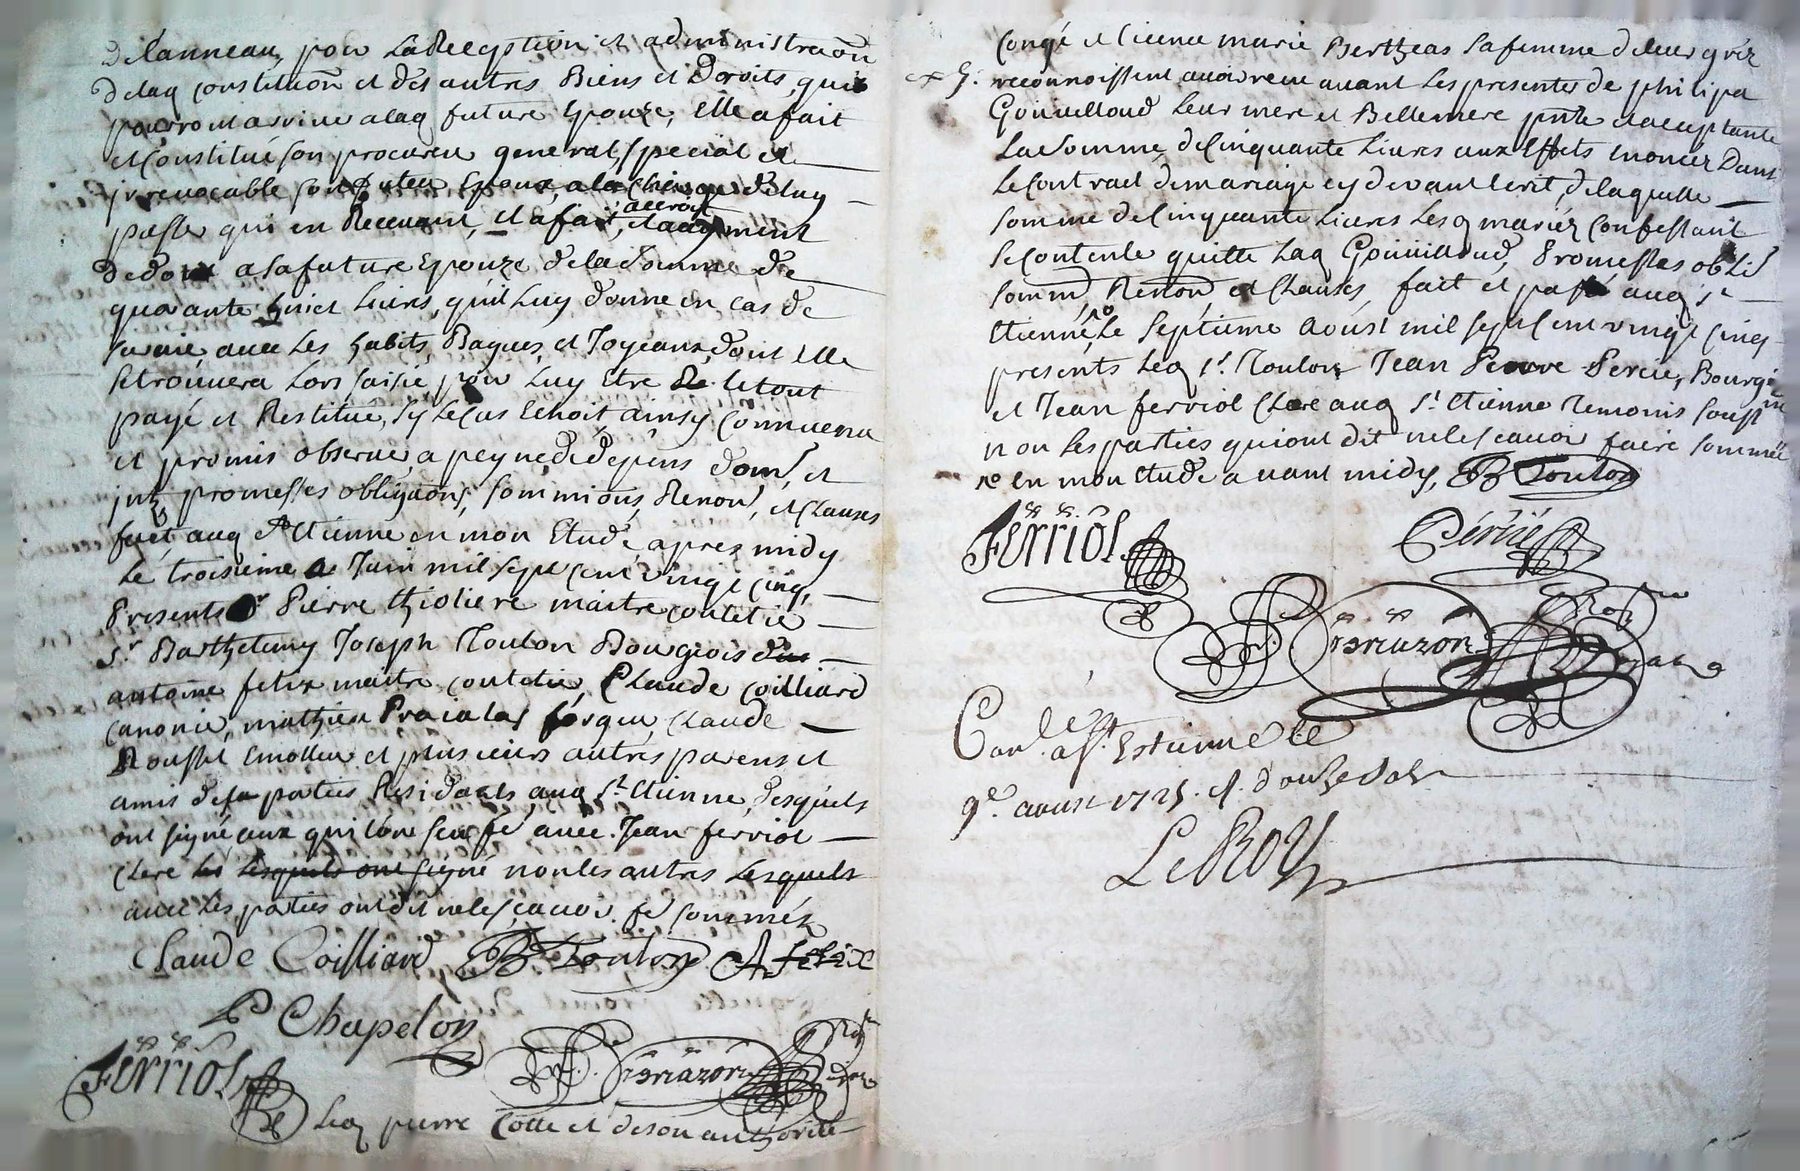 de lanneau, pour La Reception et administraõn
de laq constitutiõn et des autres Biens et Droits, qui
pourront advenir a laq future Epouze, Elle a fait
et Constitué son procureur general, special et
irrevocable son futeur Epoux, a la Charge de luy
passer qui en Recevant, Et a fait, accroist
et augment
de dot a sa future Epouze de la somme de
quarante huict Livres, qu'il Luy donne en cas de
survie, avec Les habits, Bagues, et Joyeaux, dont Elle
se trouvera Lors saisie pour Luy Etre le tout
payé et Restitué, sy Le Cas Echoit, ainsy Convenu
et promis observer, a peyne de dépens dom. et
intz, promesses obligaõns, sommiõns, Renon, et Clauses
fait auq St Etienne en mon Etude apres midy
Le troisieme Juin mil sept cent vingt cinq,
Presents Sr Pierre thioliere maitre coutelier
Sr Barthelemy Joseph Toulon Bourgeois dud.
antoine felix maitre coutelier, Claude Coilliard
canonier, mathieu Prajalas forgeur, Claude
Rousset Emolleur et plusieurs autres parens et
amis des parties Residants auq St Etienne, desquels
ont signé ceux qui l'ôns sceu fe avec Jean ferriol
Clerc les lesquels ont signé non les autres Lesquels
avec Les parties ont dit ne le scavoir fe sommés
Claude Coilliard B Toulon A felix
P Chapelon
Ferriol Terrazon
Leq pierre Cotte et de son authorité
Congé et licence marie Bertheas sa femme de leur gréz
reconnoissent avoir receu avant Les presentes de philipa
Gouuilloud Leur mere et Bellemere pnte et acceptante
La somme de Cinquante Livres aux Effets Enoncez Dans
Le Contract de mariage cy devant Ecrit, de laquelle
somme de Cinquante Livres Lesq mariez Confessant
se Contente quitte Laq Gouuilloud, Promesses oblig
somm, Renon, et Clauses, fait et passé auq St
Etienne, Le Septieme Aoust mil sept Cent vingt Cinq
presents Leq Sr Toulon Jean Pierre Perier, Bourgeois
et Jean ferriol Clerc auq St Etienne Temoins soussignes
non les parties qui ont dit ne le scavoir faire sommées
en mon Etude avant midy, B Toulon
Ferriol Périer
Terrazon
Conlé a St Estienne le
9e aoust 1725. R. douze sols
Le Roy